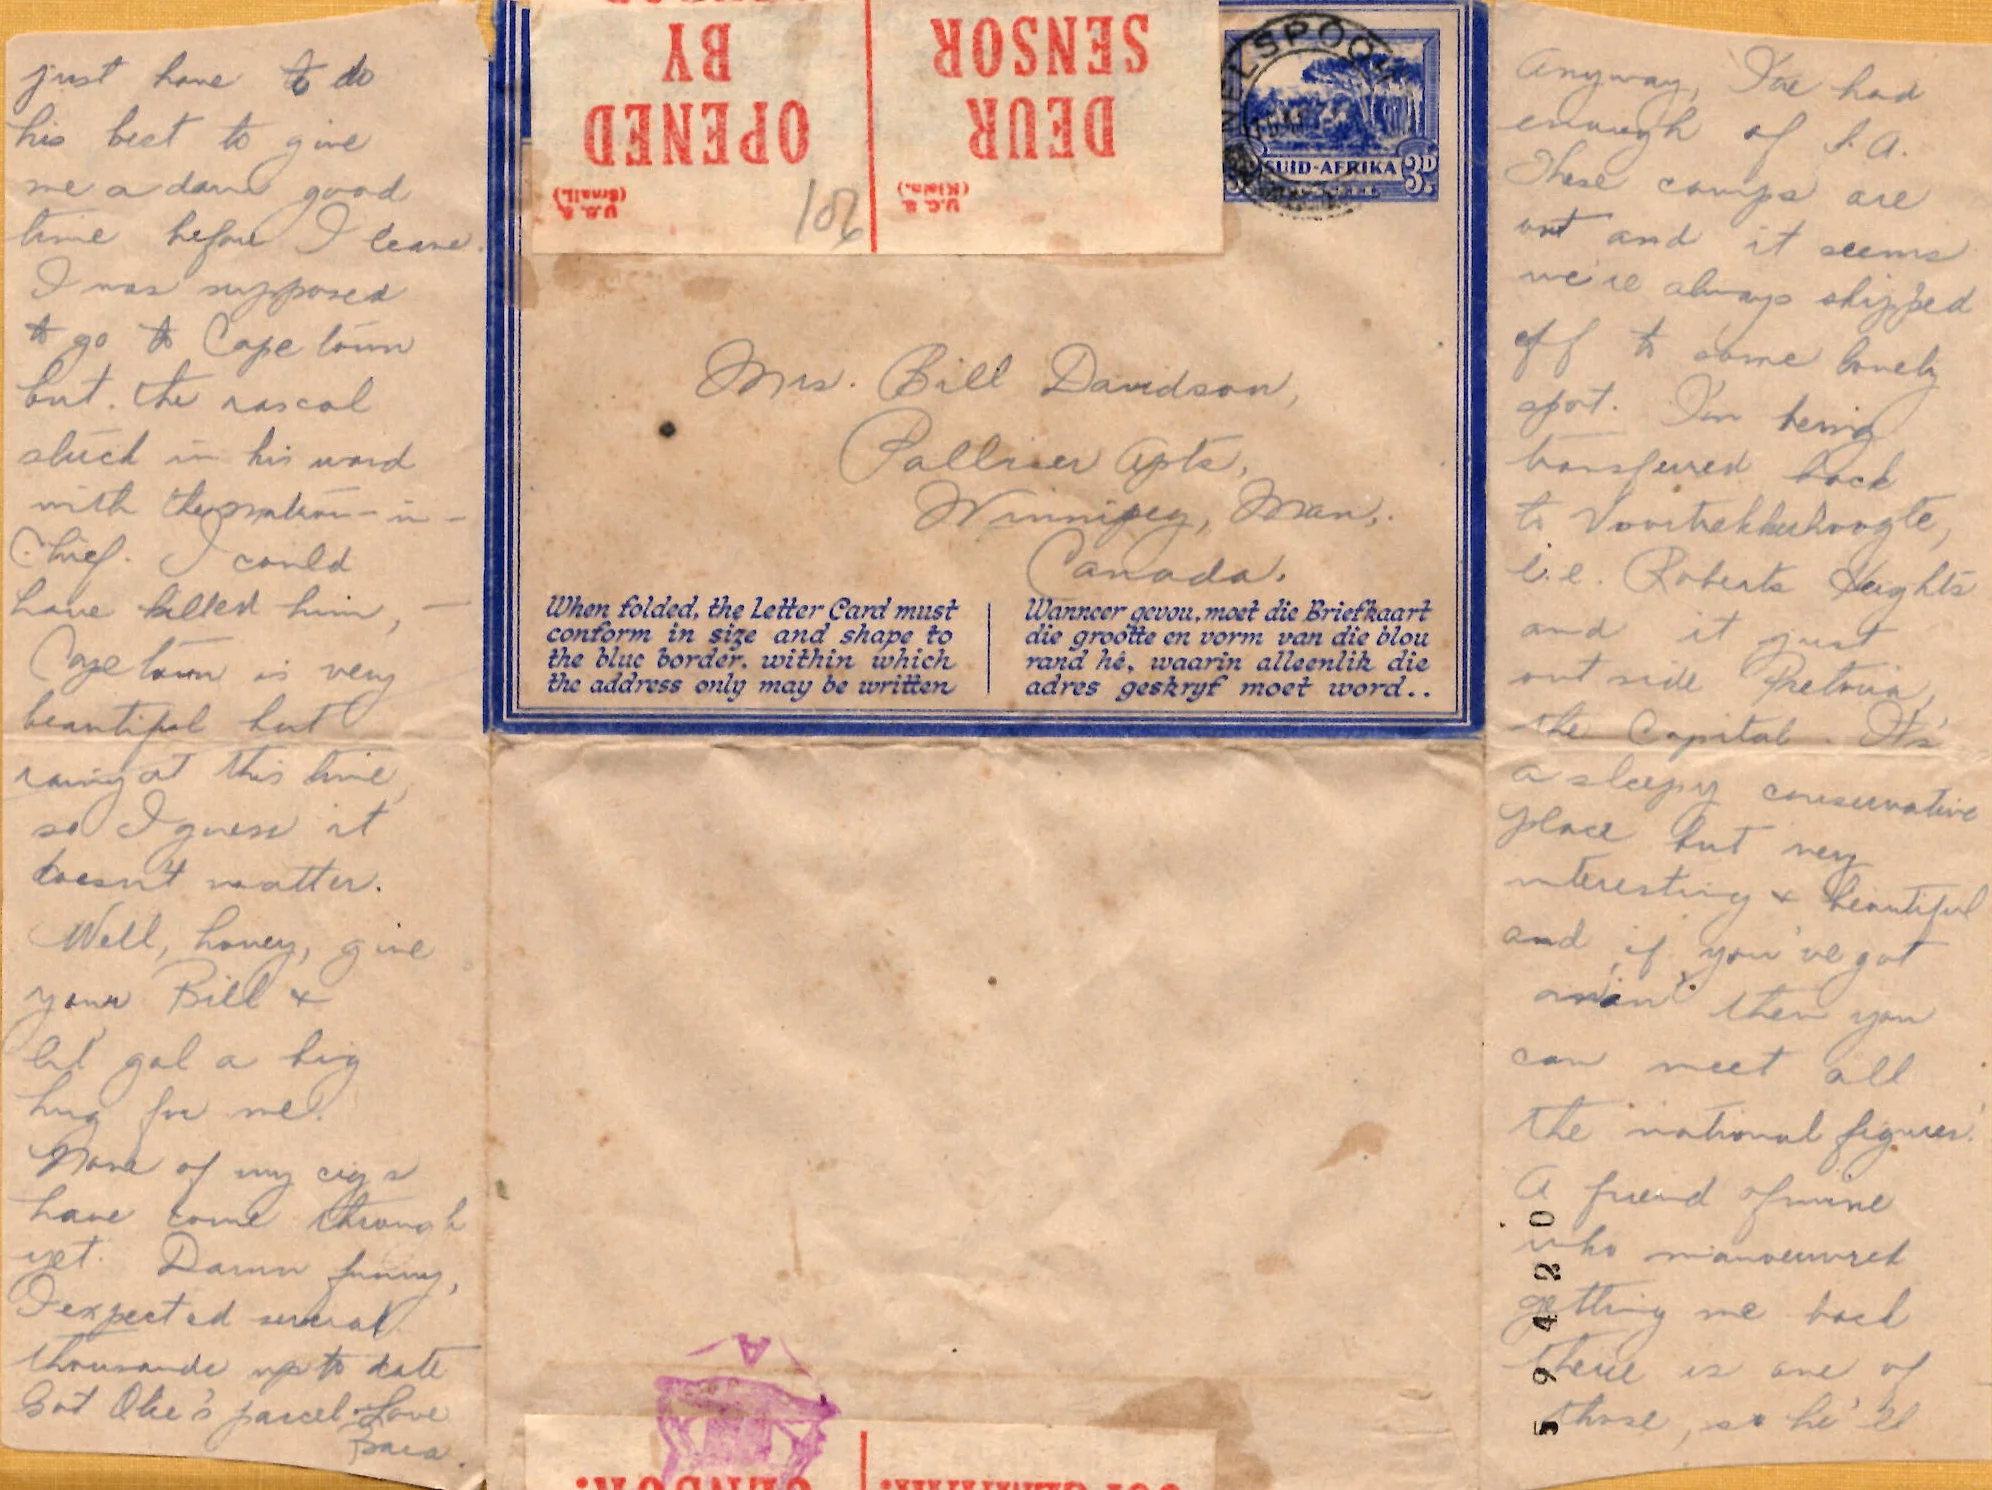 Anyway, I've had
enough of S.A.
These camps are
out and it seems
we're always shipped
off to some lonely
spot. I'm being
transferred back
to Voortrekkerhoogte,
i.e. Roberts Heights
and it just
outside Pretoria,
the Capital. It's
a sleepy conservative
place but very
interesting & beautiful
and if you've got
an "in" then you
can meet all
the national figures.
A friend of mine
who manoeuvred
getting me back
there is one of
those, so he'll
just have to do
his best to give
me a damn good
time before I leave.
I was supposed
to go to Cape Town
but the rascal
stuck in his word
with the matron-in-
Chief. I could
have killed him, —
Cape Town is very
beautiful but
rainy at this time,
so I guess it
doesn't matter.
Well, honey, give
your Bill &
lil' gal a big
hug for me.
None of my cigs
have come through
yet. Damn funny,
I expected several
thousands up to date
Got Olie's parcel. Love
OPENED
BY
DEUR
SENSOR
U.C. & S.
(Small.)
U.C. & S.
(Klein.)
106
NELSPOO
SUID-AFRIKA 3D.
Mrs. Bill Davidson,
Palliser Apts,
Winnipeg, Man.
Canada.
When folded, the Letter Card must
conform in size and shape to
the blue border, within which
the address only may be written
Wanneer gevou, moet die Briefkaart
die grootte en vorm van die blou
rand hê, waarin alleenlik die
adres geskryf moet word..
A
CENSOR.
5 9 4 2 0